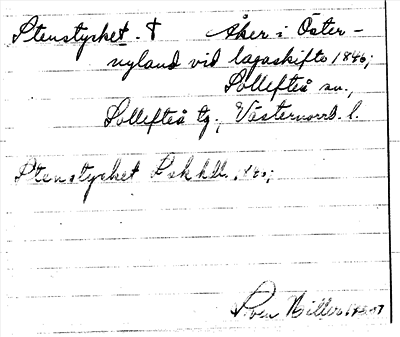 Stenstycket. † Åker i Öster-
nyland vid lagaskifte 1846;
Sollefteå sn.,
Sollefteå tg., Västernorrl. l.
Stenstycket
Sven